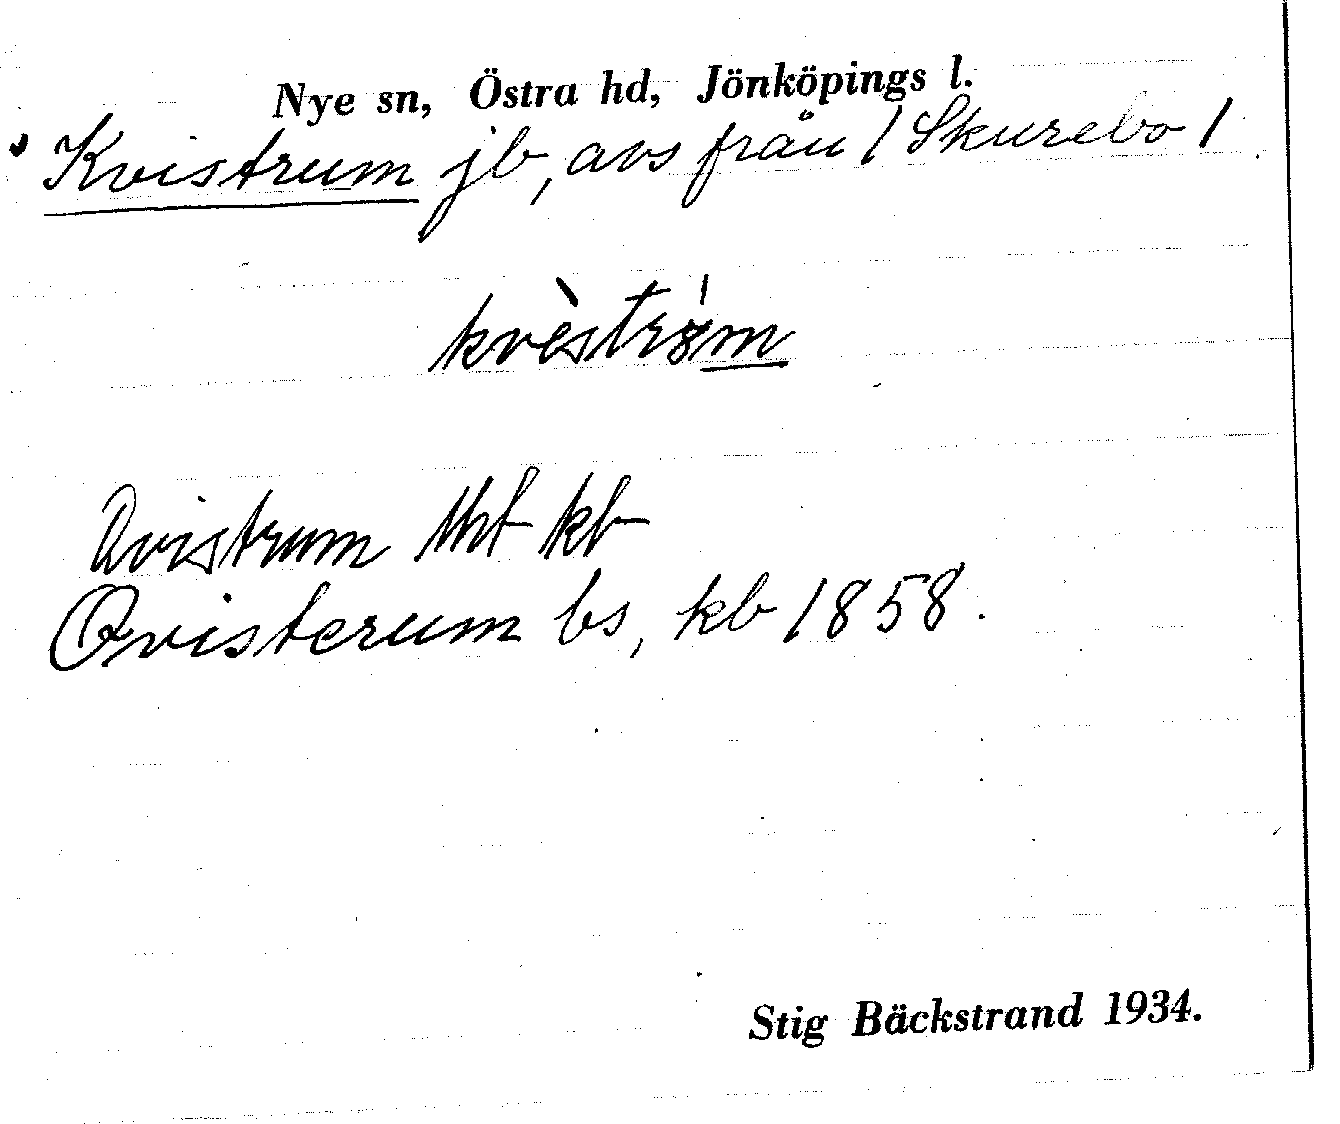 Nye sn, Östra hd, Jönköpings l.
Kvistrum jb, avs från / Skurebo /
kvèstrøm
Qvistrum kb
Qvisterum bs, kb 1858.
Stig Bäckstrand 1934.